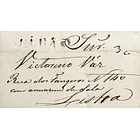 Snr. 36
Victorino Váz
Rua dos Fanqueiros Nº 140
com armazem de sola
Lisboa